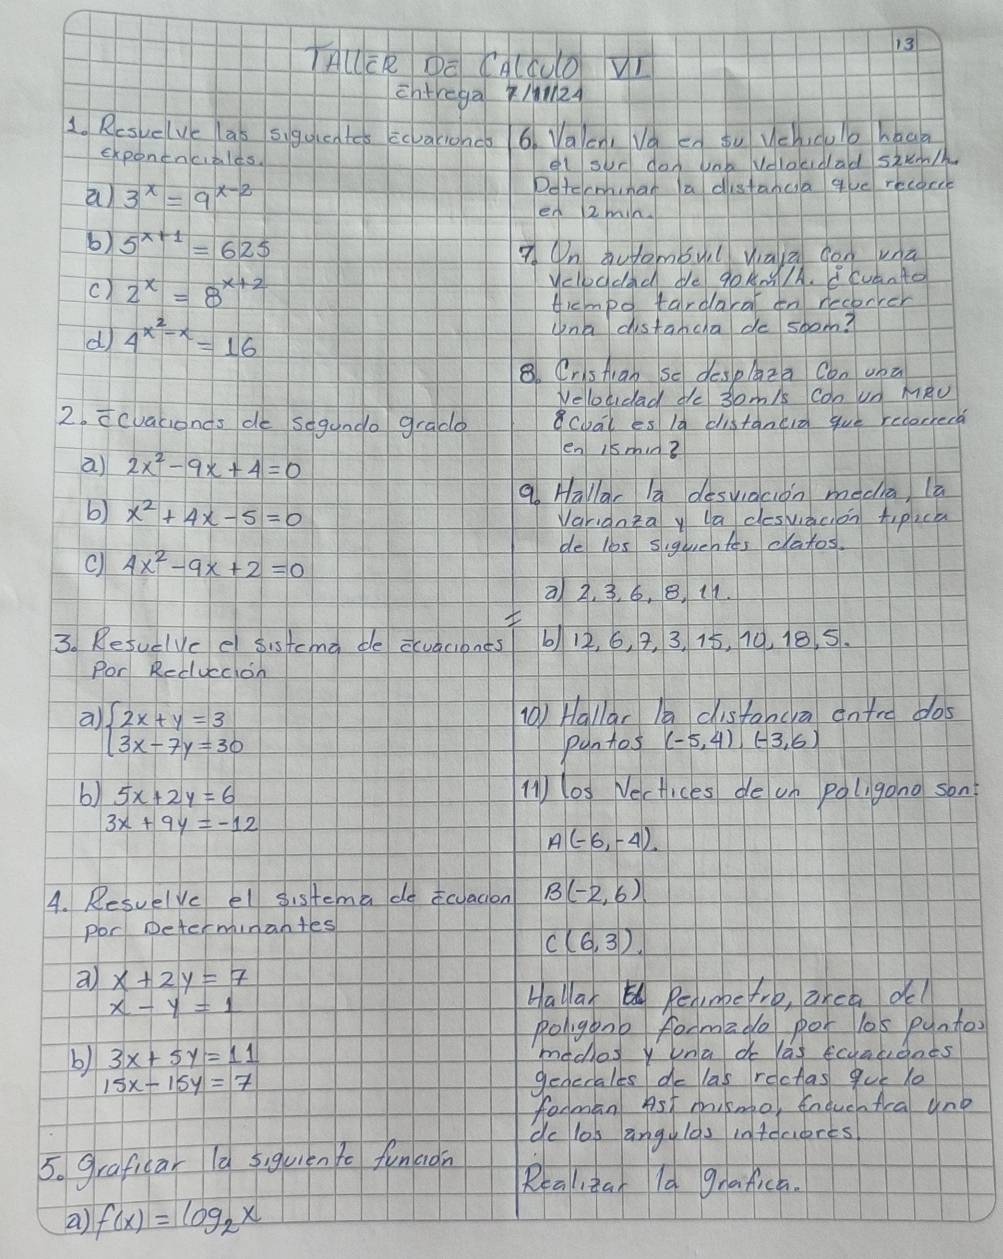 13
TALLER DE CALCULO VI
Entrega 7/11/24
1. Resuelve las siguientes Ecuaciones
exponenciales.
a) 3^x = 9^(x-2)
b) 5^(x+1) = 625
c) 2^x = 8^(x+2)
d) 4^(x²-x) = 16
2. Ecuaciones de segundo grado
a) 2x² - 9x + 4 = 0
b) x² + 4x - 5 = 0
c) 4x² - 9x + 2 = 0
3. Resuelve el sistema de ecuaciones
Por Reducción
a) { 2x + y = 3
3x - 7y = 30
b) 5x + 2y = 6
3x + 9y = -12
4. Resuelve el sistema de Ecuacion
por Determinantes
a) x + 2y = 7
x - y = 1
b) 3x + 5y = 11
15x - 15y = 7
5. graficar la siguiente función
a) f(x) = log₂x
6. Valeri Va en su Vehiculo hacia
el sur con una Velocidad 52km/h.
Determinar la distancia que recorre
en 12 min.
7. Un automóvil viaja con una
velocidad de 90km/h. ¿Cuanto
tiempo tardara en recorrer
una distancia de 500m?
8. Cristian se desplaza Con una
Velocidad de 30m/s con un MRU
¿Cuál es la distancia que recorrerá
en 15min?
9. Hallar la desviación media, la
Varianza y la desviación tipica
de los siguientes datos.
a) 2, 3, 6, 8, 11.
b) 12, 6, 7, 3, 15, 10, 18, 5.
10) Hallar la distancia entre dos
puntos (-5,4) (-3,6)
11) los Vertices de un poligono son:
A(-6,-4).
B(-2,6)
C(6,3).
Hallar Perimetro, area del
poligono formado por los puntos
medios y una de las ecuaciones
generales de las rectas que lo
forman Asi mismo, Encuentra uno
de los angulos interiores.
Realizar la grafica.